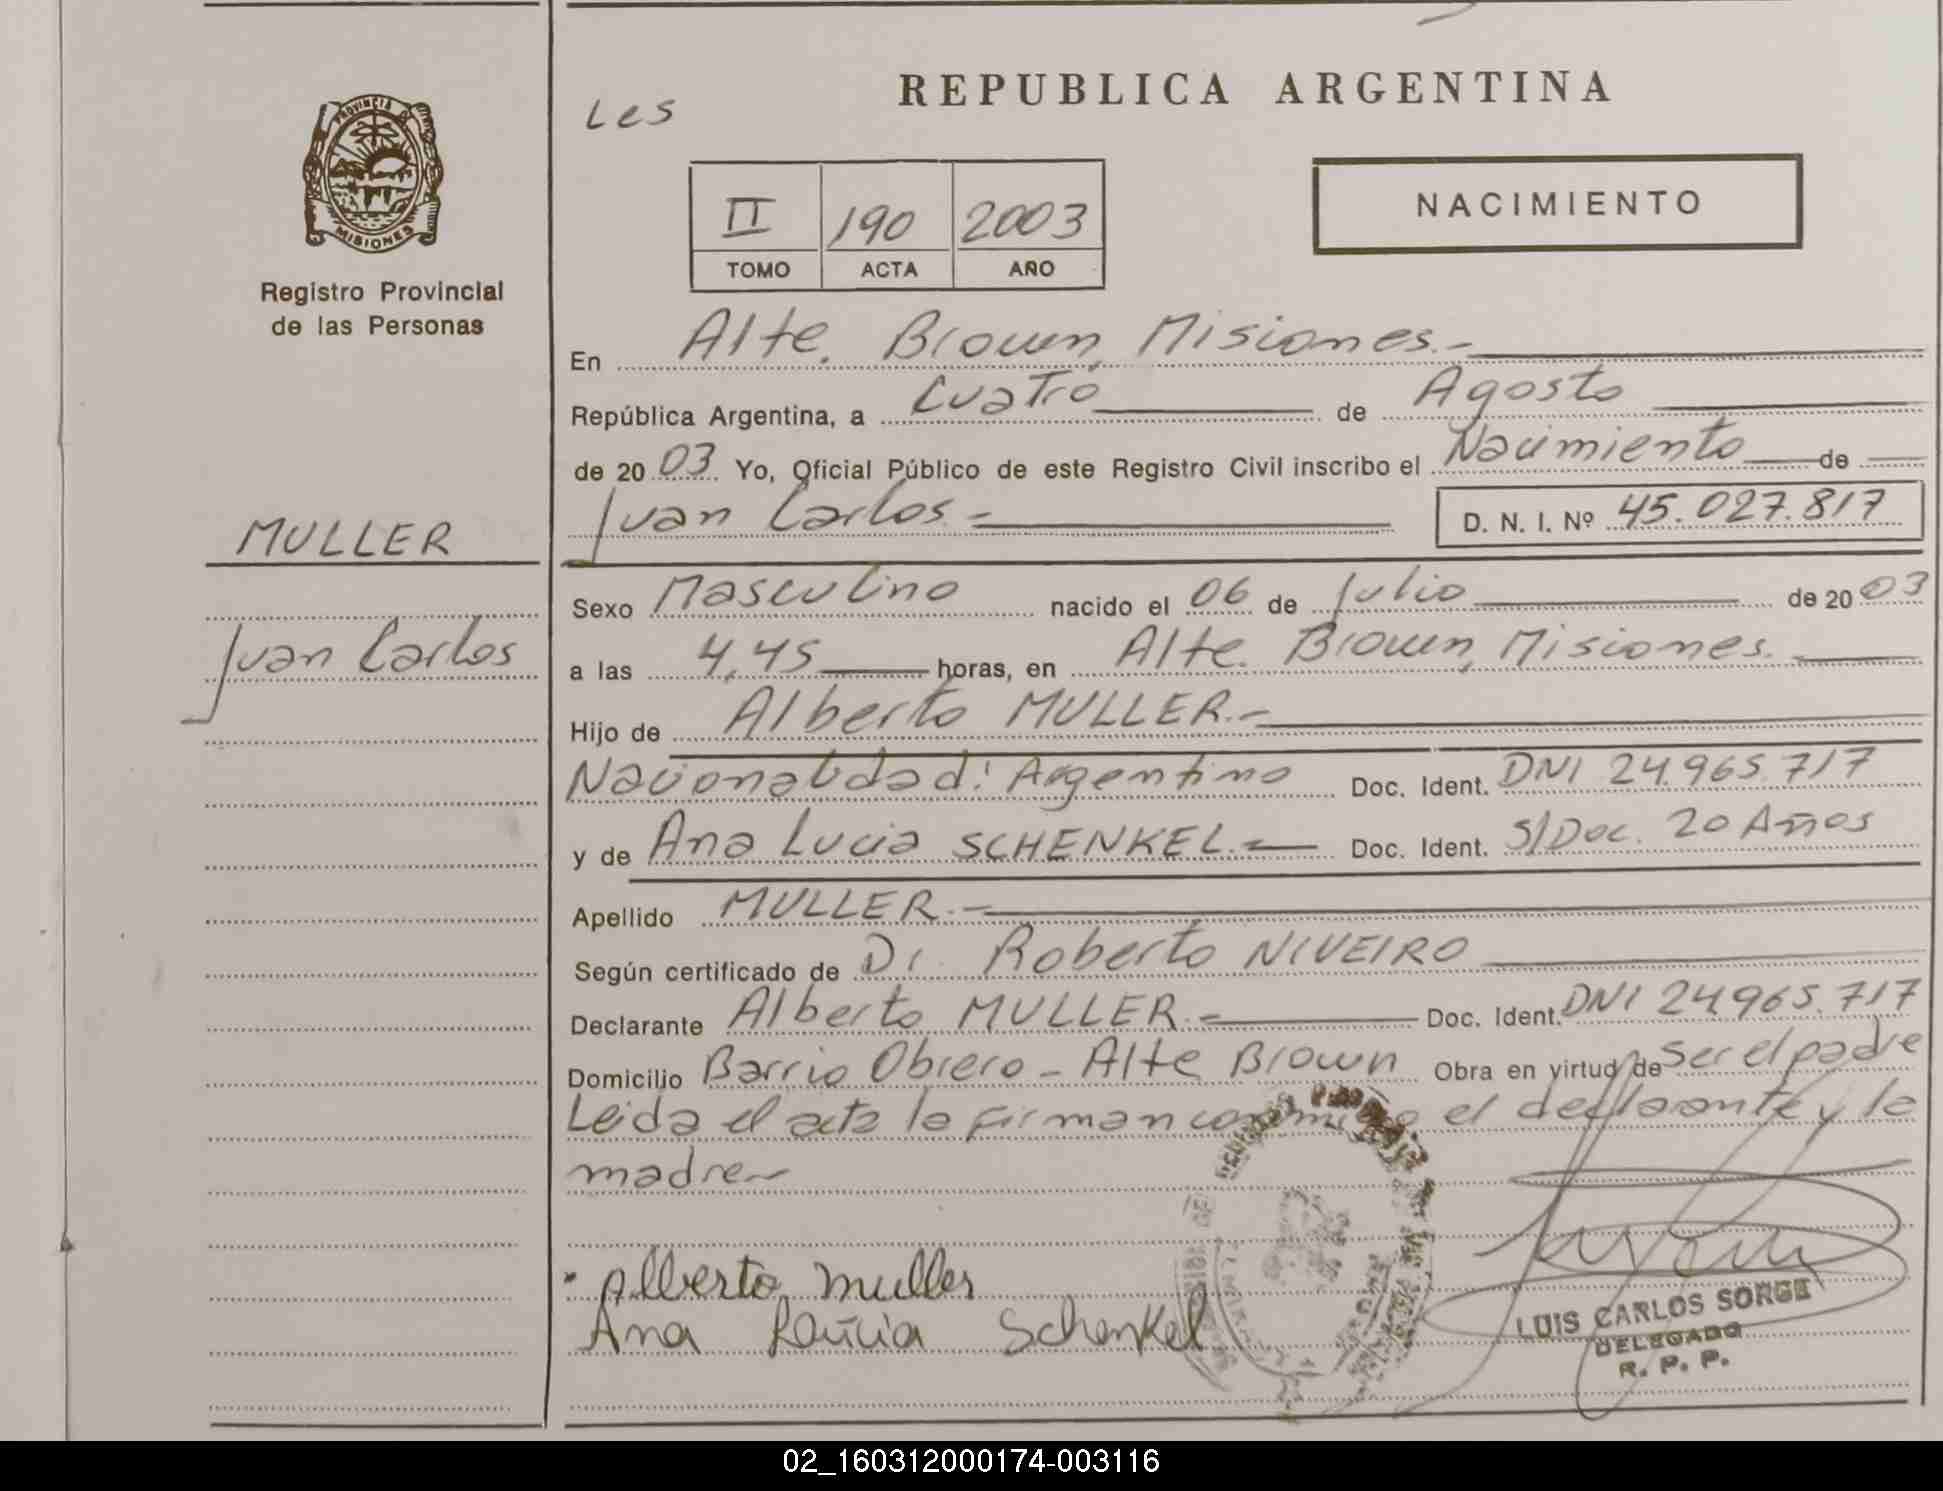 PROVINCIA DE
MISIONES
Registro Provincial
de las Personas
MULLER
Juan Carlos
Les
REPUBLICA ARGENTINA
II 190 2003
TOMO ACTA AÑO
NACIMIENTO
En Alte. Brown, Misiones.-
República Argentina, a Cuatro de Agosto
de 20 03 Yo, Oficial Público de este Registro Civil inscribo el Nacimiento de
Juan Carlos.- D. N. I. Nº 45.027.817
Sexo Masculino nacido el 06 de Julio de 20 03
a las 4,45 horas, en Alte. Brown, Misiones.
Hijo de Alberto MULLER.-
Nacionalidad: Argentino Doc. Ident. DNI 24.965.717
y de Ana Lucia SCHENKEL.- Doc. Ident. S/Doc. 20 Años
Apellido MULLER.-
Según certificado de Dr. Roberto NIVEIRO
Declarante Alberto MULLER.- Doc. Ident. DNI 24.965.717
Domicilio Barrio Obrero - Alte Brown Obra en virtud de Ser el padre
Leida el acta la firman conmigo el declarante y la
madre
Alberto muller
Ana Schenkel
LUIS CARLOS SORGE
DELEGADO
R. P. P.
02_160312000174-003116